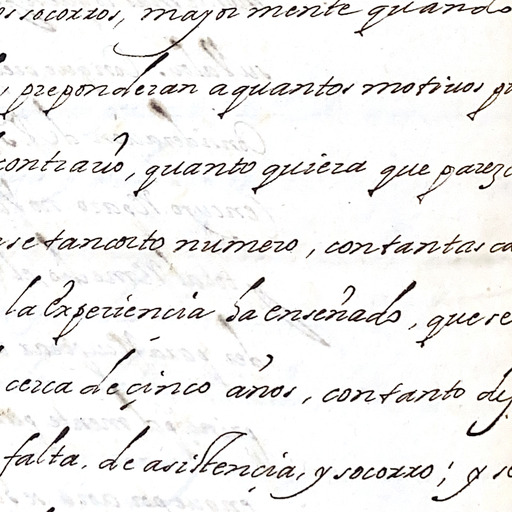 socorros, mayormente quando
preponderan aquantos motivos
contrario, quanto quiera que parez
se tan corto numero, contantas
la experiencia ha enseñado, que se
cerca de çinco años, contanto
falta, de asistençia, y socorro; y